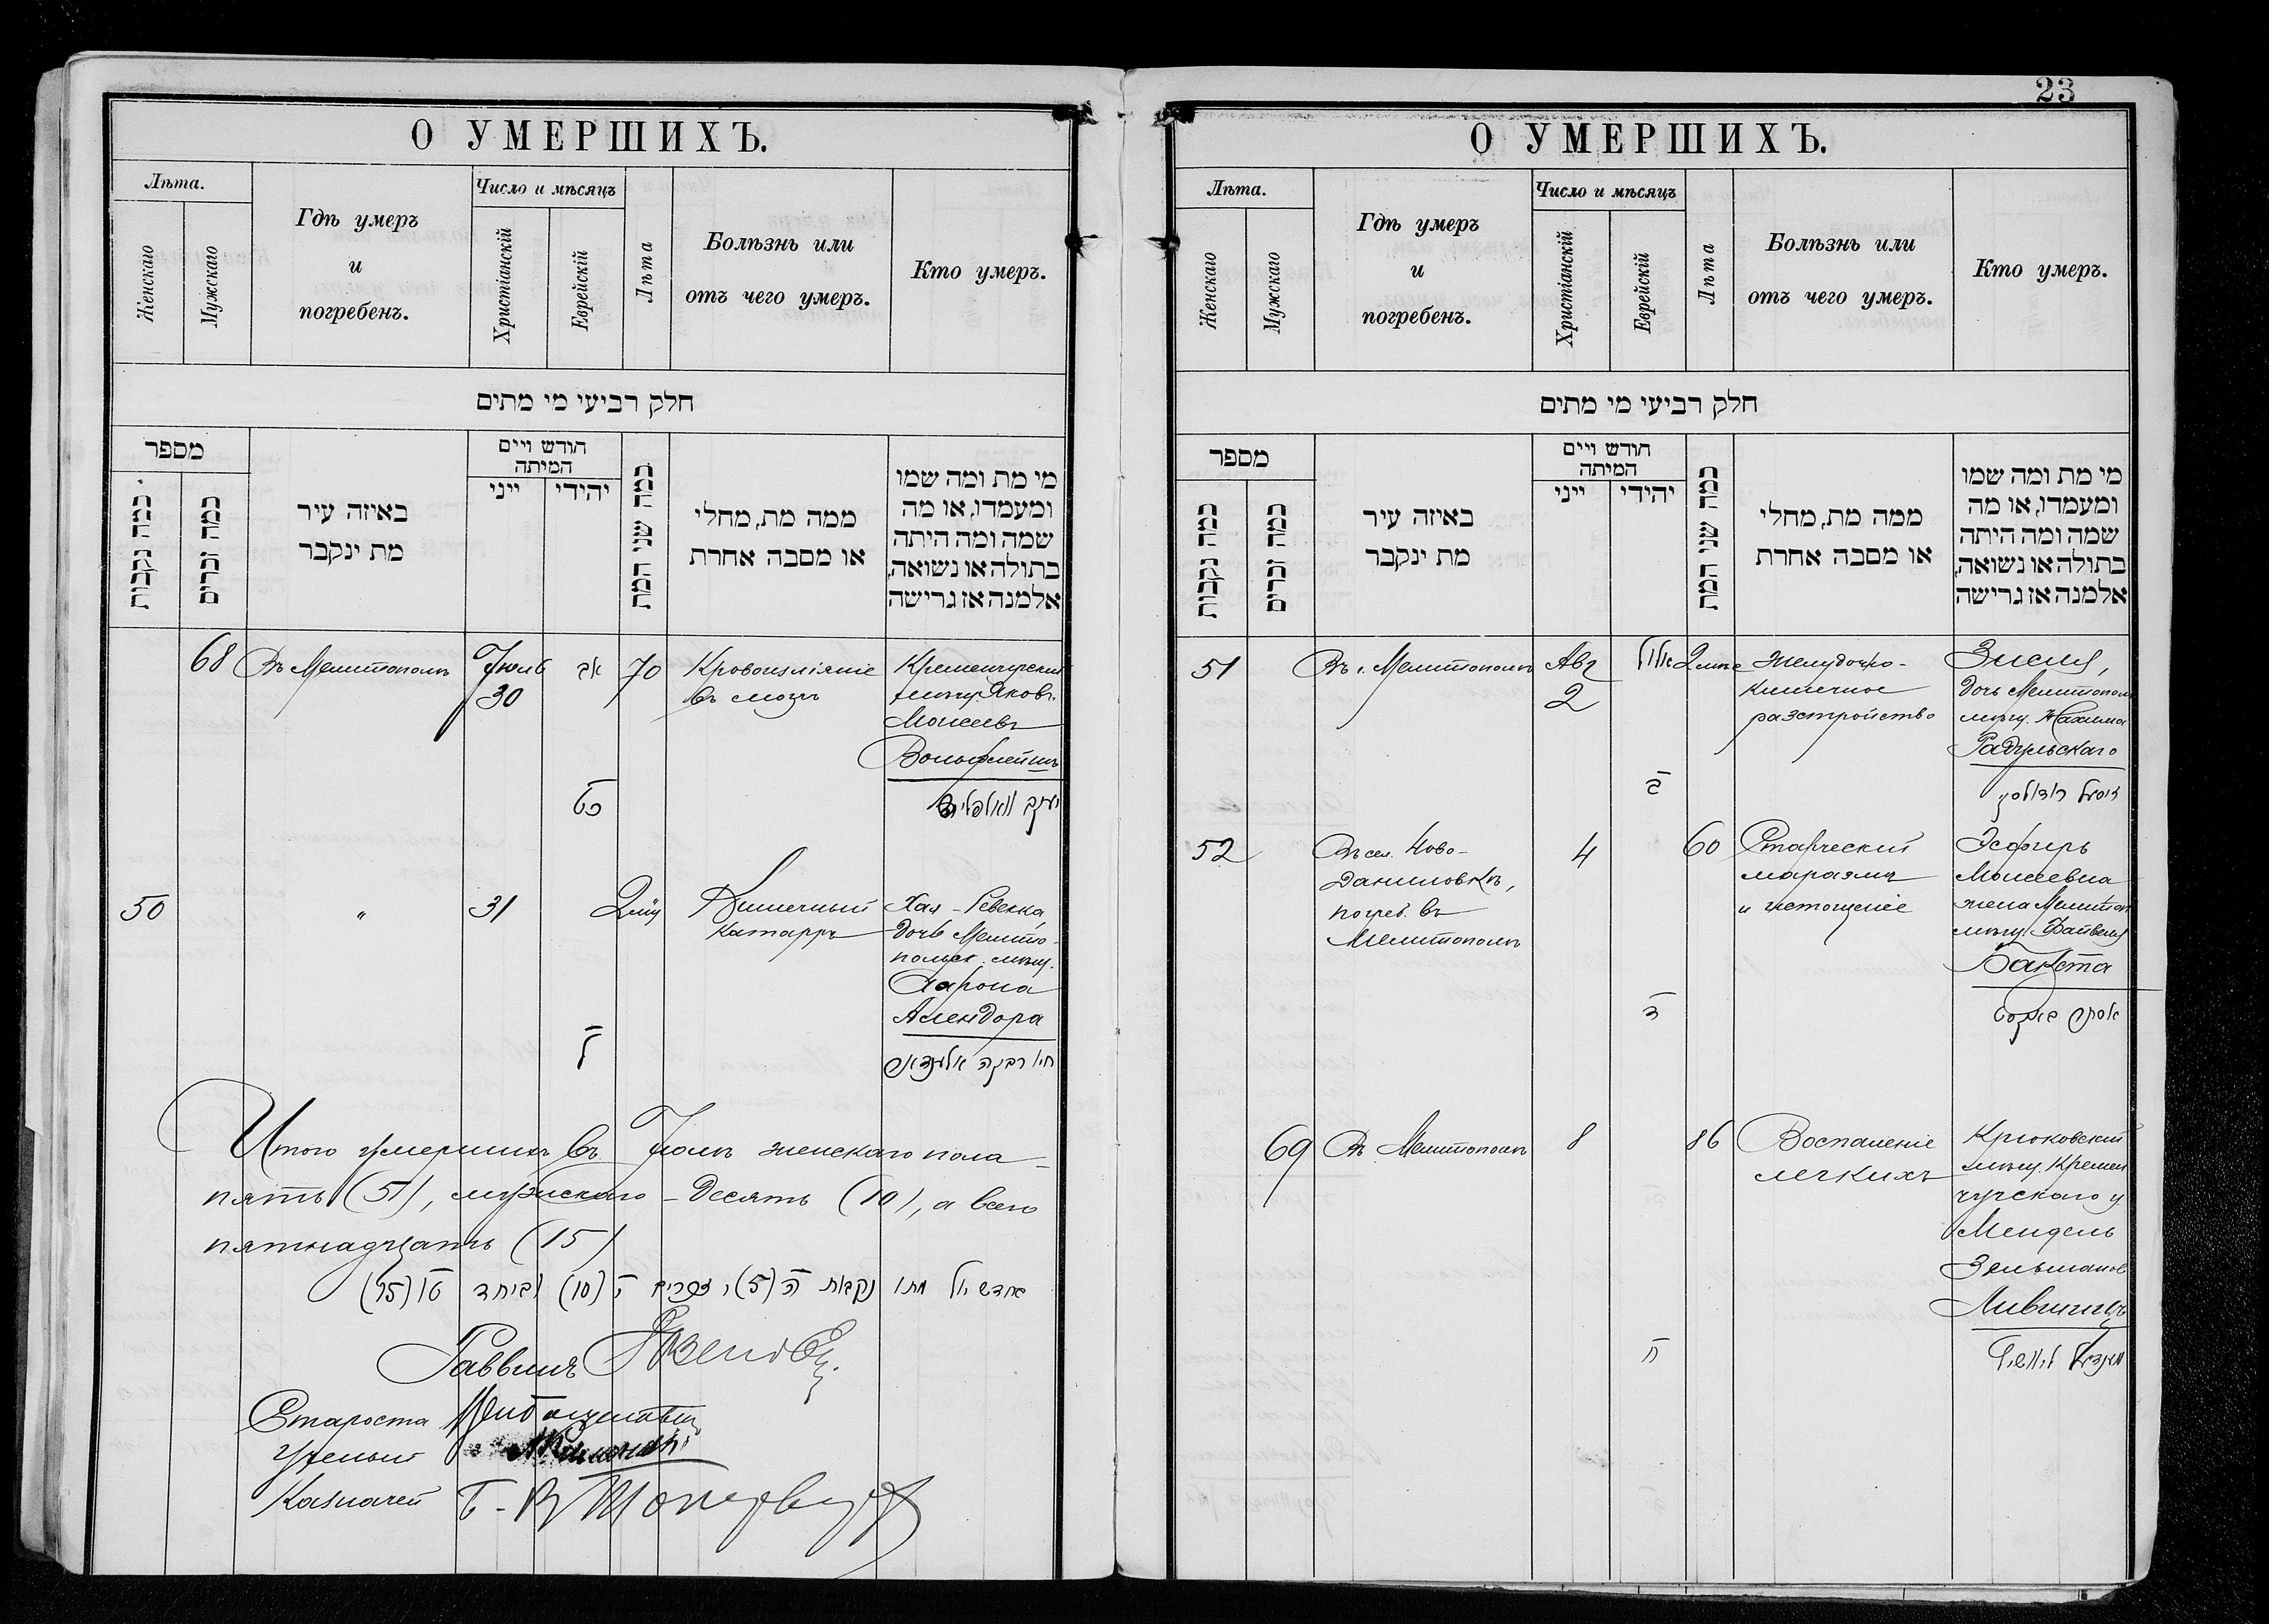 23
О УМЕРШИХЪ.
Лѣта.
Женскаго
Мужскаго
Гдѣ умеръ
и
погребенъ.
Число и мѣсяцъ
Христіанскій
Еврейскій
Лѣта
Болѣзнь или
отъ чего умеръ.
Кто умеръ.
חלק רביעי מי מתים
מספר
כמה נקבות
כמה זכרים
באיזה עיר
מת ינקבר
חודש ויים
המיתה
ייני
יהודי
כמה שני המת
ממה מת, מחלי
או מסבה אחרת
מי מת ומה שמו
ומעמדו, או מה
שמה ומה היתה
בתולה או נשואה,
אלמנה אז גרישה
68
Въ Мелитополѣ
Іюль
30
אב
כט
70
Кровоизліяніе
въ мозгъ
Кременчугскій
мѣщ. Яковъ
Моисеевъ
Вольфлейшъ
יעקב וואלפליש
50
"
31
ל
2 мѣс
Кишечный
катарръ
Хая-Ревекка,
дочь Мелито-
польск. мѣщ.
Аарона
Алендора
חיו רבקה
Итого умершихъ въ Іюлѣ женскаго пола -
пять (5), мужскаго - десять (10), а всего
пятнадцать (15)
בחדש יול מתו נקבות ה (5) זכרים י (10) וביחד טו (15)
Раввинъ
Староста
Ученый
Казначей
О УМЕРШИХЪ.
Лѣта.
Женскаго
Мужскаго
Гдѣ умеръ
и
погребенъ.
Число и мѣсяцъ
Христіанскій
Еврейскій
Лѣта
Болѣзнь или
отъ чего умеръ.
Кто умеръ.
חלק רביעי מי מתים
מספר
כמה נקבות
כמה זכרים
באיזה עיר
מת ינקבר
חודש ויים
המיתה
ייני
יהודי
כמה שני המת
ממה מת, מחלי
או מסבה אחרת
מי מת ומה שמו
ומעמדו, או מה
שמה ומה היתה
בתולה או נשואה,
אלמנה אז גרישה
51
Въ г. Мелитополѣ
Авг
2
אלול
ב
Желудочно-
кишечное
разстройство
Зисля,
дочь Мелитопол
мѣщ. Нахима
Радульскаго
זיסל ראדולסקי
52
Въ сел. Ново-
Даниловкѣ,
погреб. въ
Мелитополѣ
4
ד
60
Старческій
маразмъ
и истощеніе
Эсфирь
Моисеевна
жена Мелитоп
мѣщ. Файвеля
Бакста
אסתר באקסט
69
Въ Мелитополѣ
8
ח
86
Воспаленіе
легкихъ
Крюковскій
мѣщ. Кремен
чугскаго у.
Мендель
Зельманов
Лившицъ
מענדל ליוושיץ